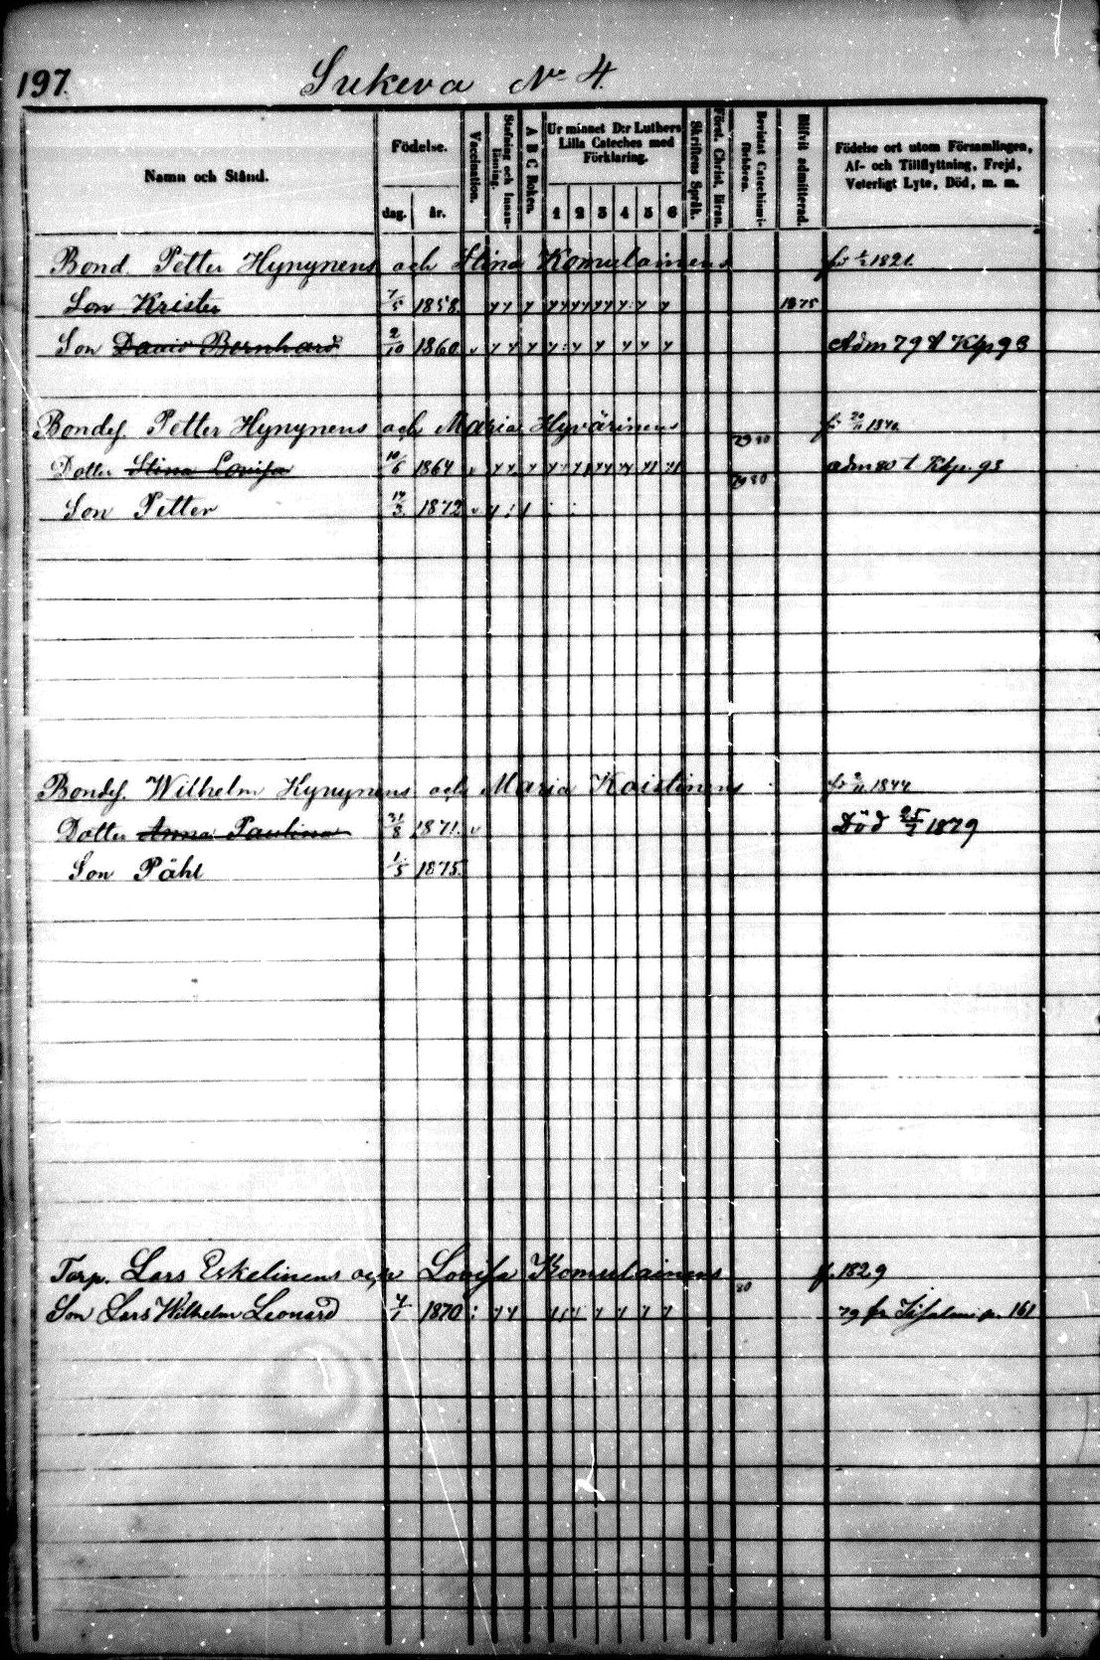 197.
Sukeva No 4.
Namn och Stånd.
Födelse.
dag.
år.
Vaccination.
Stafning och Innanläsning.
A B C Boken.
Ur minnet D:r Luthers Lilla Cateches med Förklaring.
1 2 3 4 5 6
Skriftens Språk.
Bevistat Catechismiförhören.
Blifvit admitterad.
Födelse ort utom Församlingen,
Af- och Tillflyttning, Frejd,
Veterligt Lyte, Död, m. m.
Bond. Petter Hynynens och Stina Komulainens 1821
Son Krister 7/5 1858 1875
Son David Bernhard 2/10 1860 Adm 79 Kp 93
Bondes. Petter Hynynens och Maria Hyvärinens 1840 79 80
Dotter Stina Lovisa 10/6 1864 adm 80 t Klp. 93 79 80
Son Petter 14/3 1872
Bondes. Wilhelm Hynynens och Maria Koistinens 1844
Dotter Anna Paulina 31/8 1871 Död 25/7 1879
Son Påhl 1/5 1875
Torp. Lars Eskelinens och Lovisa Komulainens f. 1829
Son Lars Wilhelm Leonard 1870 79 fr p. 161